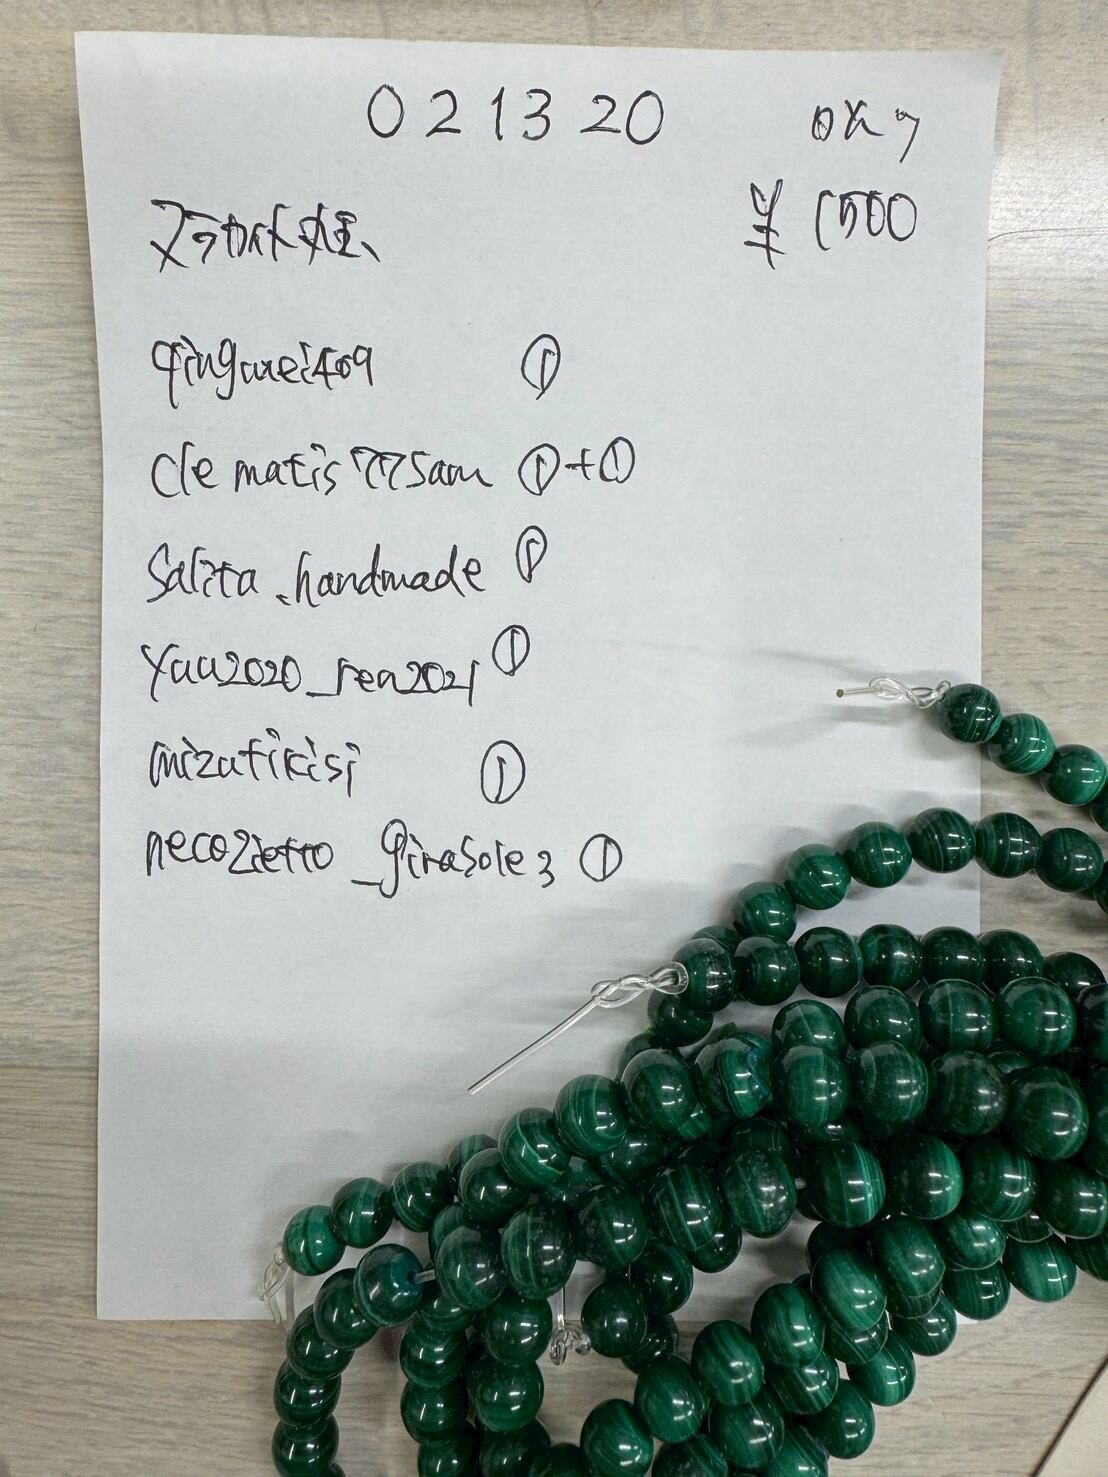 021320
¥1500
qingwei409 ①
clematis775am ①+①
Salita_handmade ①
yuu2020_ren2021 ①
mizutikisi ①
necozietto_girasole3 ①